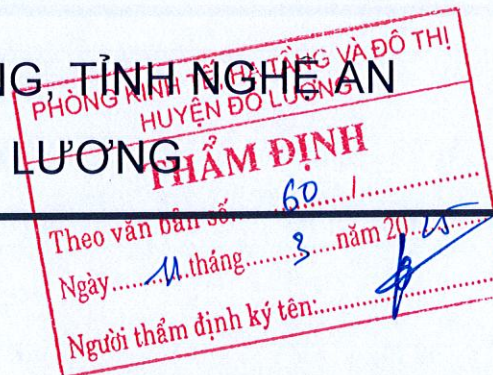 NG, TỈNH NGHỆ AN
LƯƠNG
PHÒNG KINH TẾ, HẠ TẦNG VÀ ĐÔ THỊ
HUYỆN ĐÔ LƯƠNG
THẨM ĐỊNH
Theo văn bản số......60....../..............
Ngày......11.tháng.......3.....năm 20..25.....
Người thẩm định ký tên:....................